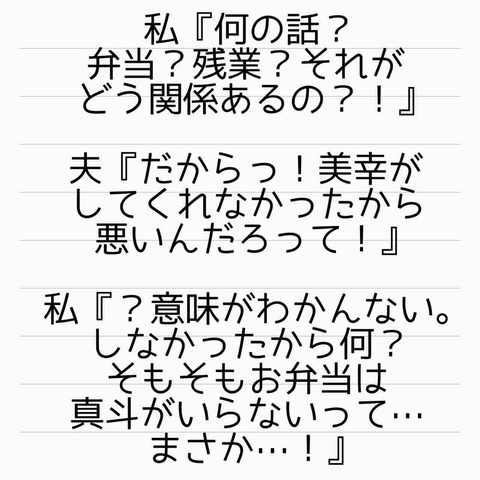 私『何の話？
弁当？残業？それが
どう関係あるの？！』
夫『だからっ！美幸が
してくれなかったから
悪いんだろって！』
私『？意味がわかんない。
しなかったから何？
そもそもお弁当は
真斗がいらないって…
まさか…！』